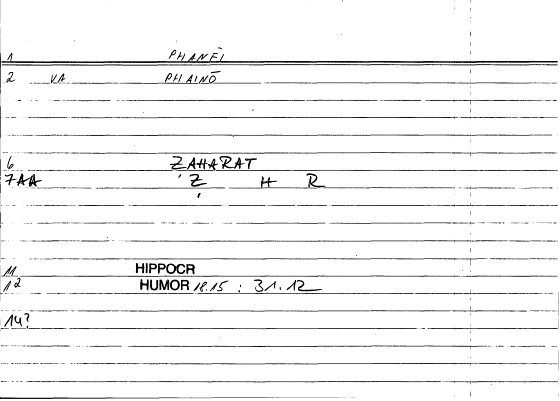 1 PHANEI
2 VA PHAINŌ
6 ZAHARAT
7AA 'Z H R
11 HIPPOCR
12 HUMOR 18.15 : 31.12
14?